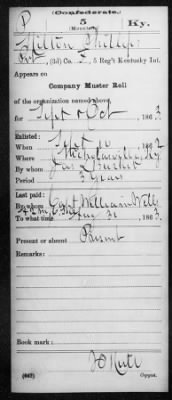 (Confederate.)
P 5 Ky.
(Mounted.)
Hilton Phillips
Pvt, (3d) Co. I, 5 Reg't Kentucky Inf.
Appears on
Company Muster Roll
of the organization named above,
for Sept & Oct, 1863
Enlisted:
When Sept 10, 1862
Where
By whom
Period 3 years
Last paid:
By whom Capt William Wells
To what time Aug 31, 1863.
Present or absent Present
Remarks:
Book mark:
(642) Copyist.